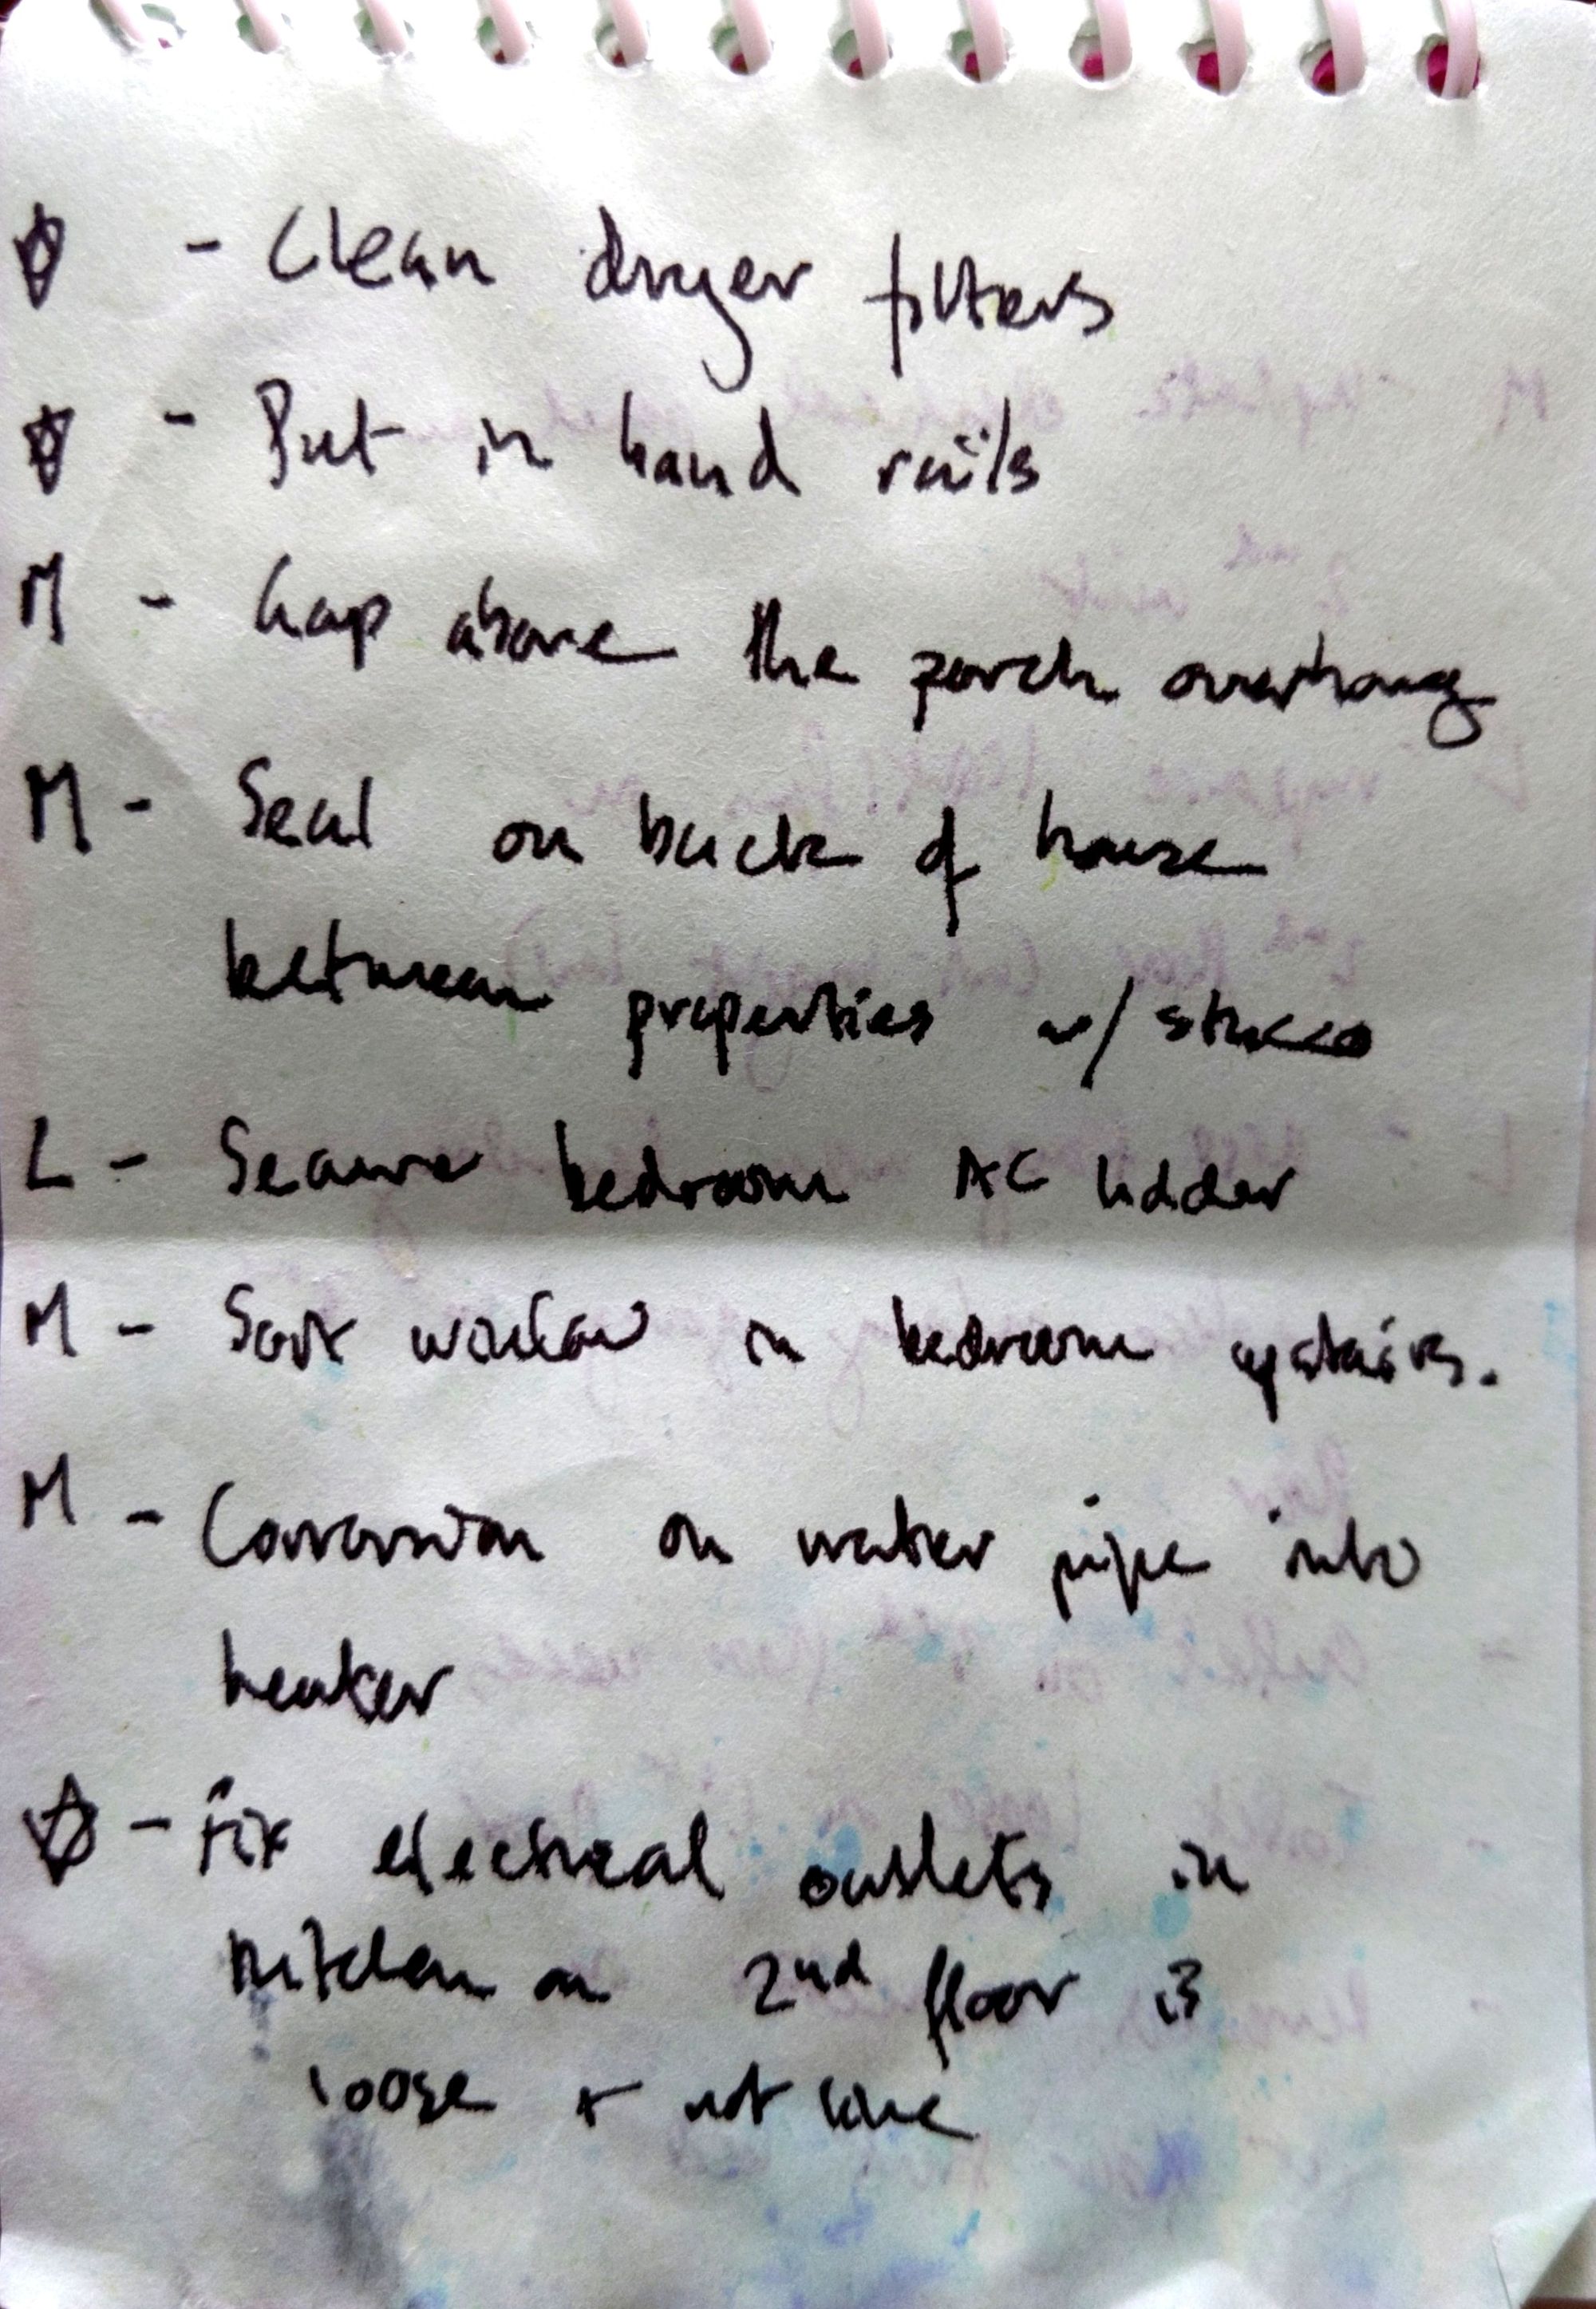 ☆ - Clean dryer filters
☆ - Put in hand rails
M - Gap above the porch overhang
M - Seal on back of house
between properties w/ stucco
L - Secure bedroom AC ladder
M - Soft window in bedroom upstairs.
M - Corrosion on water pipe into
heater
☆ - Fix electrical outlets in
kitchen on 2nd floor is
loose + not live